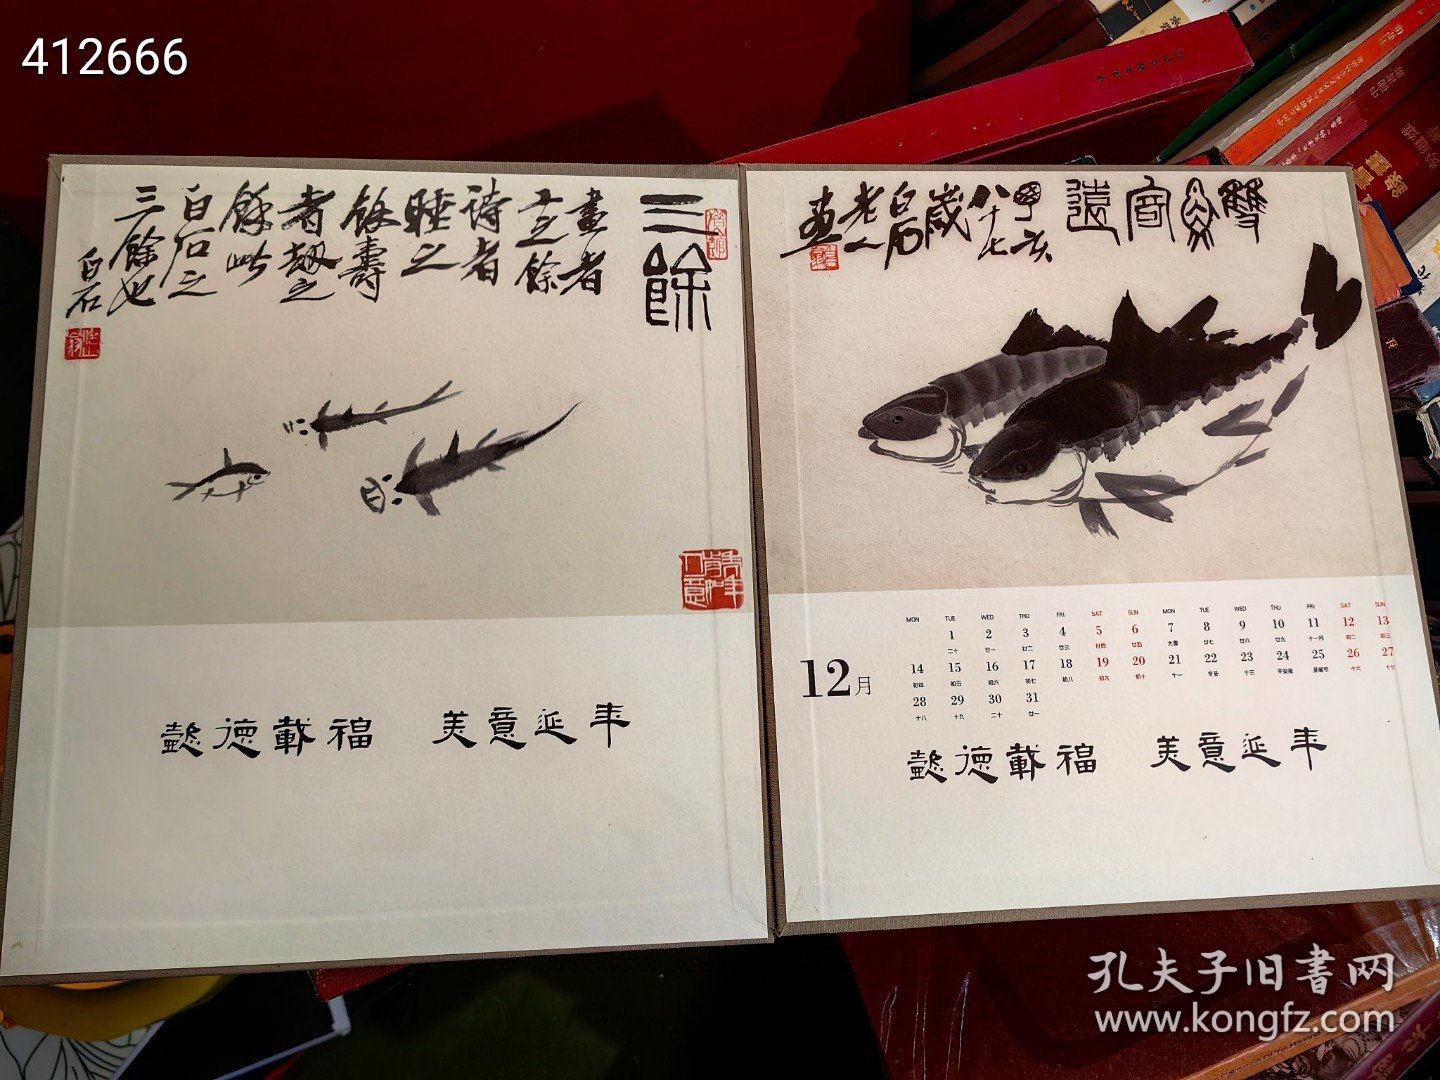 412666
三餘
畫者
工之餘
詩者
睡之
餘壽
者劫之
餘此
白石之
三餘也
白石
雙魚富遠
甲亥
八十七
歲
白石
老人
畫
MON TUE WED THU FRI SAT SUN MON TUE WED THU FRI SAT SUN
1 2 3 4 5 6 7 8 9 10 11 12 13
二十 廿一 廿二 廿三 廿四 廿五 大雪 廿七 廿八 廿九 十一月 初二 初三
12月
14 15 16 17 18 19 20 21 22 23 24 25 26 27
初四 初五 初六 初七 初八 初九 初十 十一 冬至 十三 平安夜 圣诞节 十六 十七
28 29 30 31
十八 十九 二十 廿一
懿德載福 美意延年
懿德載福 美意延年
孔夫子旧書网
www.kongfz.com